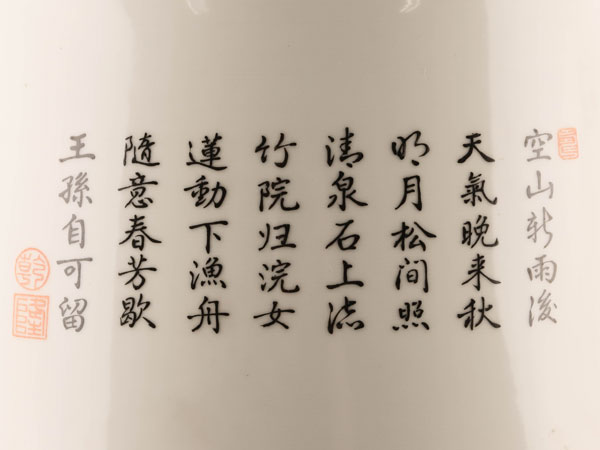 空山新雨後
天氣晚来秋
明月松间照
清泉石上流
竹院归浣女
蓮動下漁舟
隨意春芳歇
王孫自可留
乾
隆